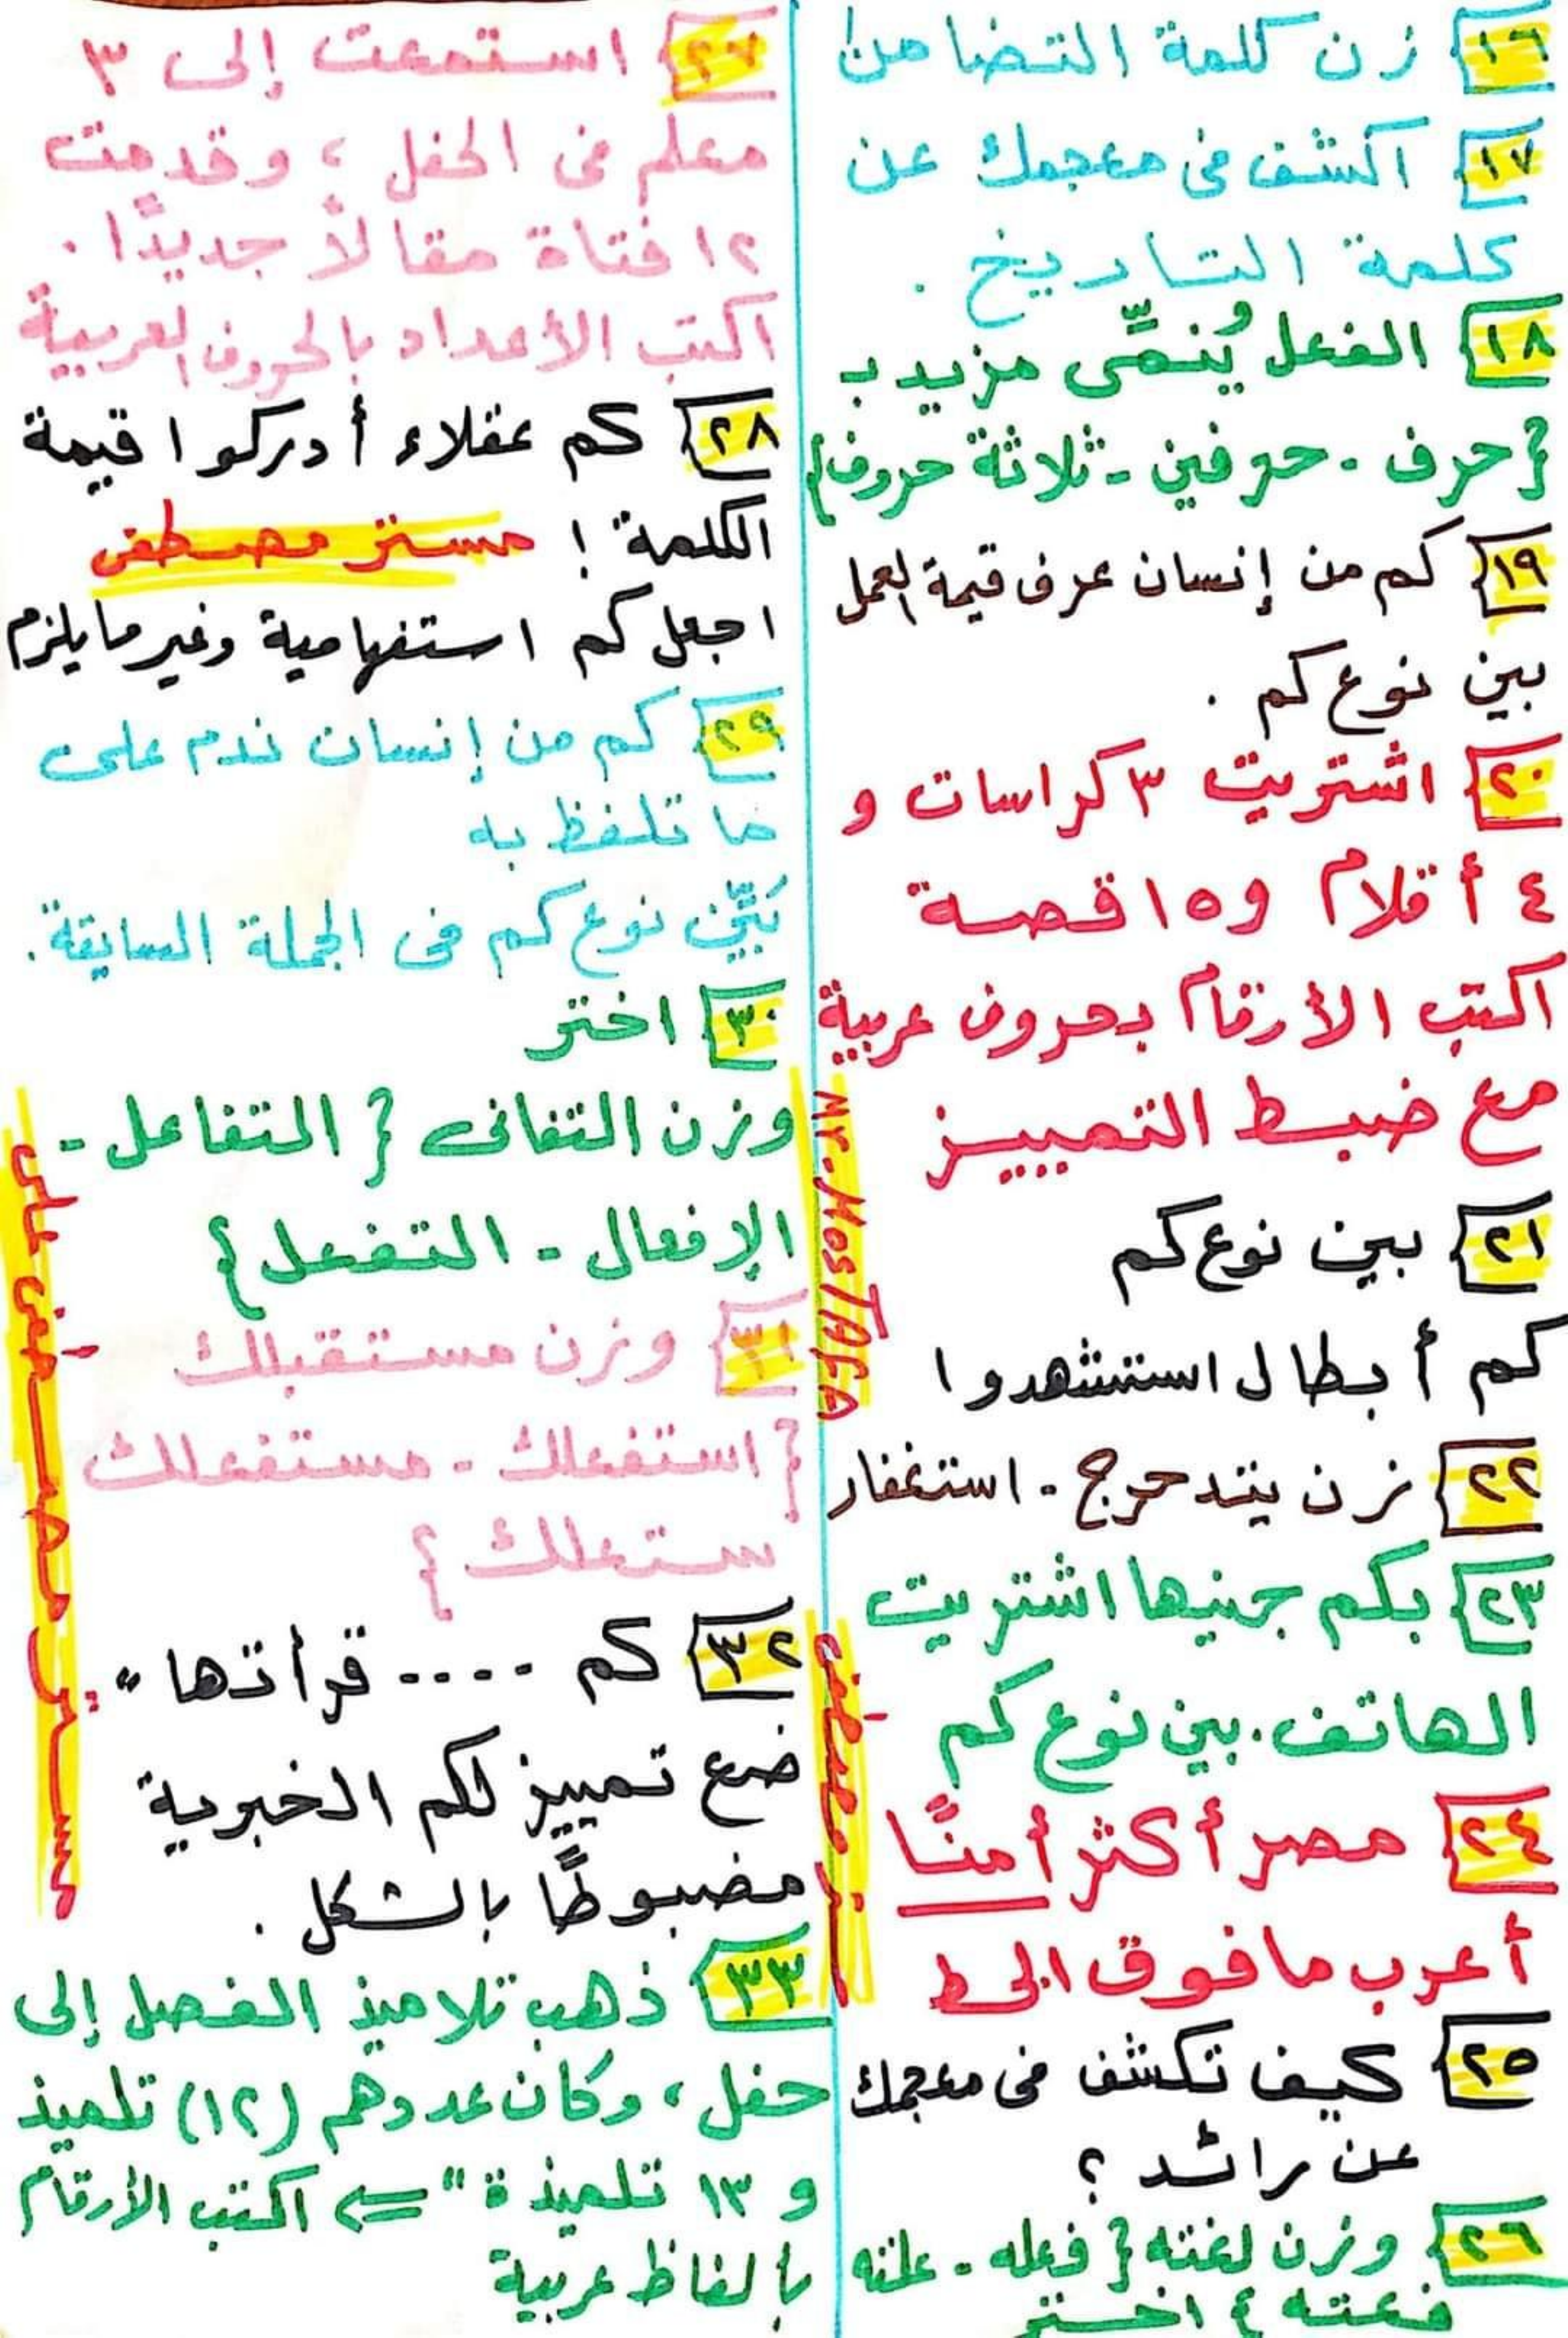 ١٦ زن كلمة التضامن
١٧ اكشف فى معجمك عن
كلمة التاريخ .
١٨ الفعل يُنمِّى مزيد بـ
{حرف - حرفين - ثلاثة حروف}
١٩ كم من إنسان عرف قيمة العمل
بين نوع كم .
٢٠ اشتريت ٣ كراسات و
٤ أقلام و ١٥ قصة
اكتب الأرقام بحروف عربية
مع ضبط التمييز
٢١ بين نوع كم
كم أبطال استشهدوا
٢٢ زن يتدحرج - استغفار
٢٣ بكم جنيها اشتريت
الهاتف . بين نوع كم
٢٤ مصر أكثر أمنًا
أعرب ما فوق الخط
٢٥ كيف تكشف فى معجمك
عن رائد ؟
٢٦ وزن لغته { فعله - علته
فعته } اختر
Mr. MosTAFA
مستر مصطفى
٢٧ استمعت إلى ٣
معلم فى الحفل ، وقدمت
١٢ فتاة مقالاً جديدًا .
اكتب الأعداد بالحروف العربية
٢٨ كم عقلاء أدركوا قيمة
الكلمة ! مستر مصطفى
اجعل كم استفهامية وغير ما يلزم
٢٩ كم من إنسان ندم على
ما تلفظ به
بَيِّن نوع كم فى الجملة السابقة .
٣٠ اختر
وزن التفانى { التفاعل -
الإفعال - التفعل }
٣١ وزن مستقبلك
{ استفعلك - مستفعلك
ستعلك }
٣٢ كم ---- قرأتها "
ضع تمييز لكم الخبرية
مضبوطًا بالشكل .
٣٣ ذهب تلاميذ الفصل إلى
حفل ، وكان عددهم (١٢) تلميذ
و ١٣ تلميذة " ⇐ اكتب الأرقام
بألفاظ عربية
مستر مصطفى على